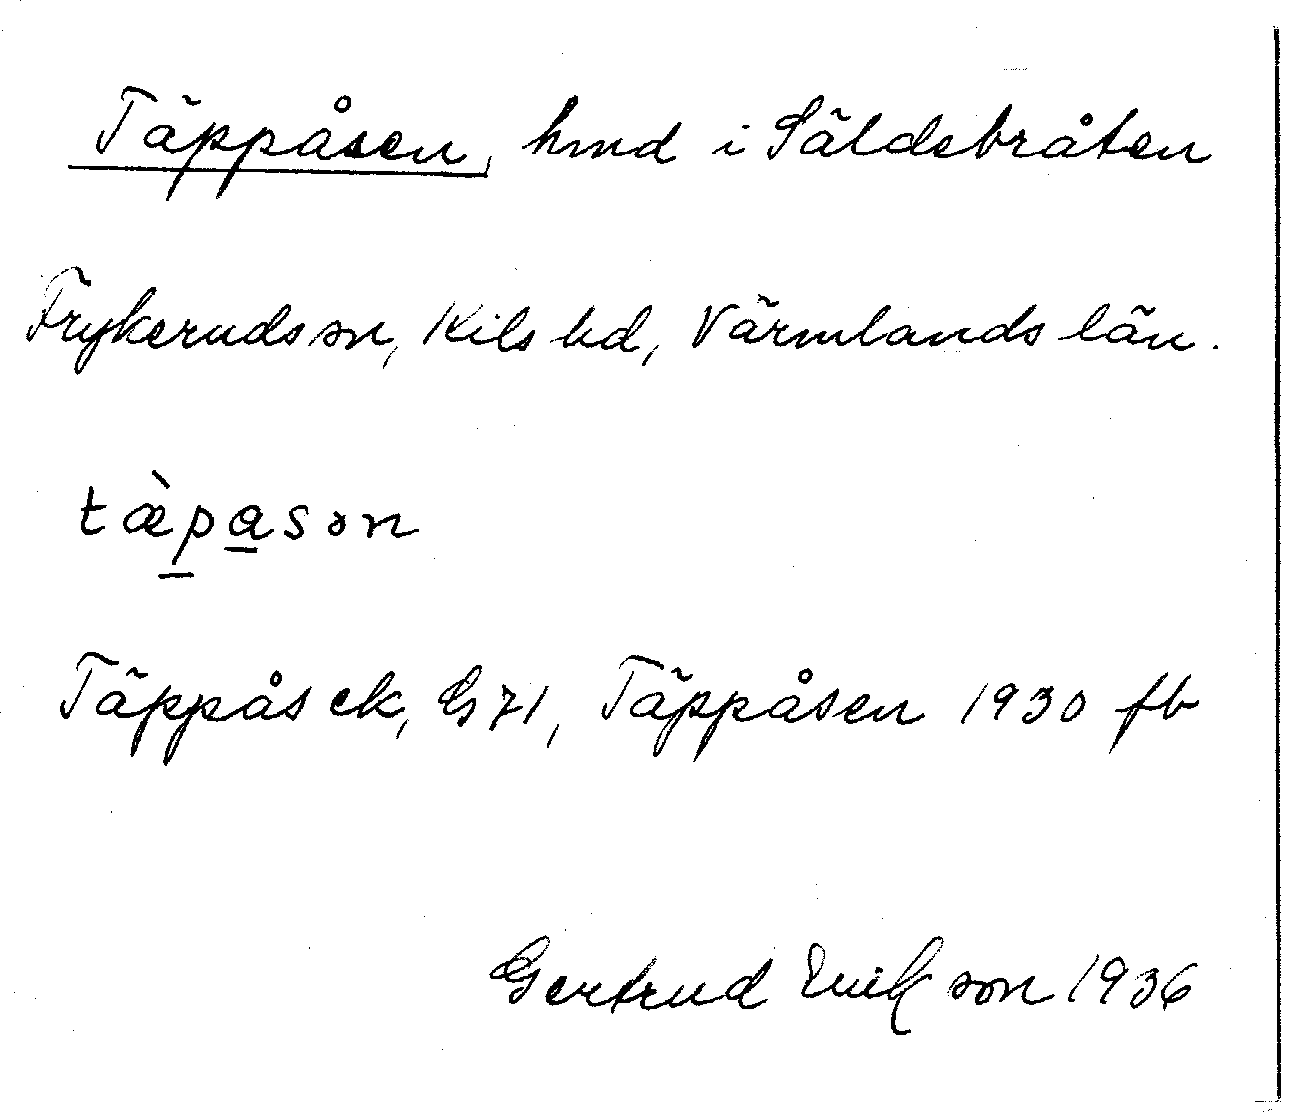 Täppåsen, hmd i Säldebråten
Frykeruds sn, Kils hd, Värmlands län.
tæ̀p̠a̠sən
Täppås ek, G 71, Täppåsen 1930 fb
Gertrud Erikson 1936